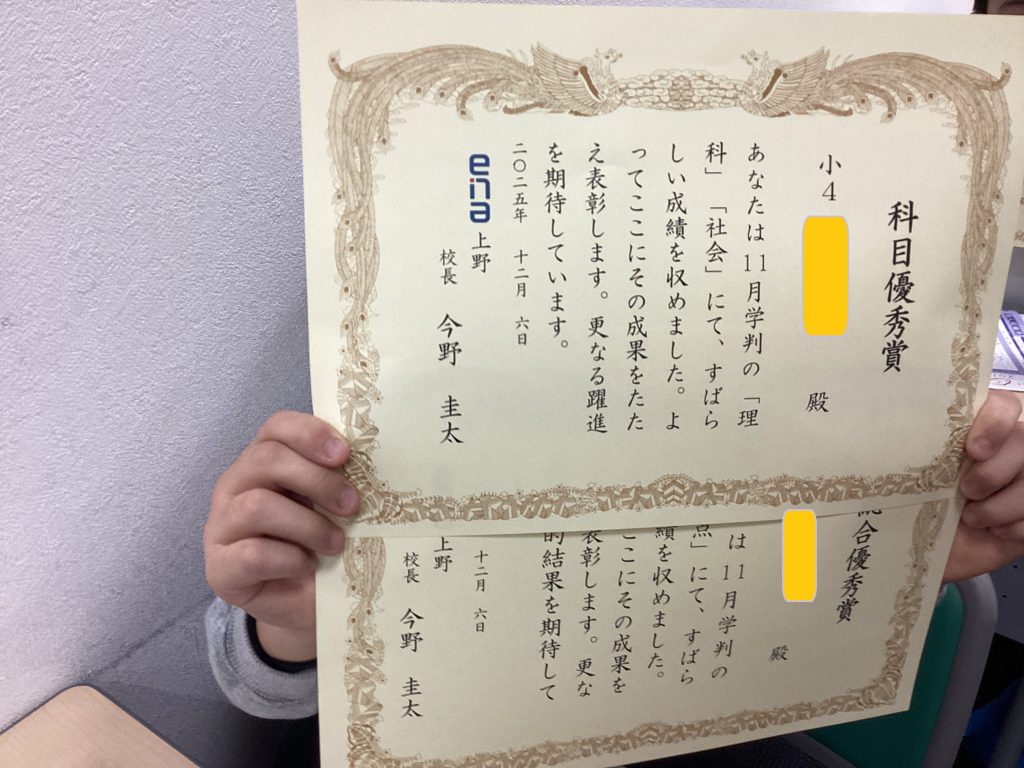 科目優秀賞
小4
殿
あなたは11月学判の「理
科」「社会」にて、すばら
しい成績を収めました。よ
ってここにその成果をたた
え表彰します。更なる躍進
を期待しています。
二〇二五年 十二月 六日
ena 上野
校長 今野 圭太
合優秀賞
殿
は11月学判の
点」にて、すばら
績を収めました。
ここにその成果を
表彰します。更な
的結果を期待して
十二月 六日
上野
校長 今野 圭太